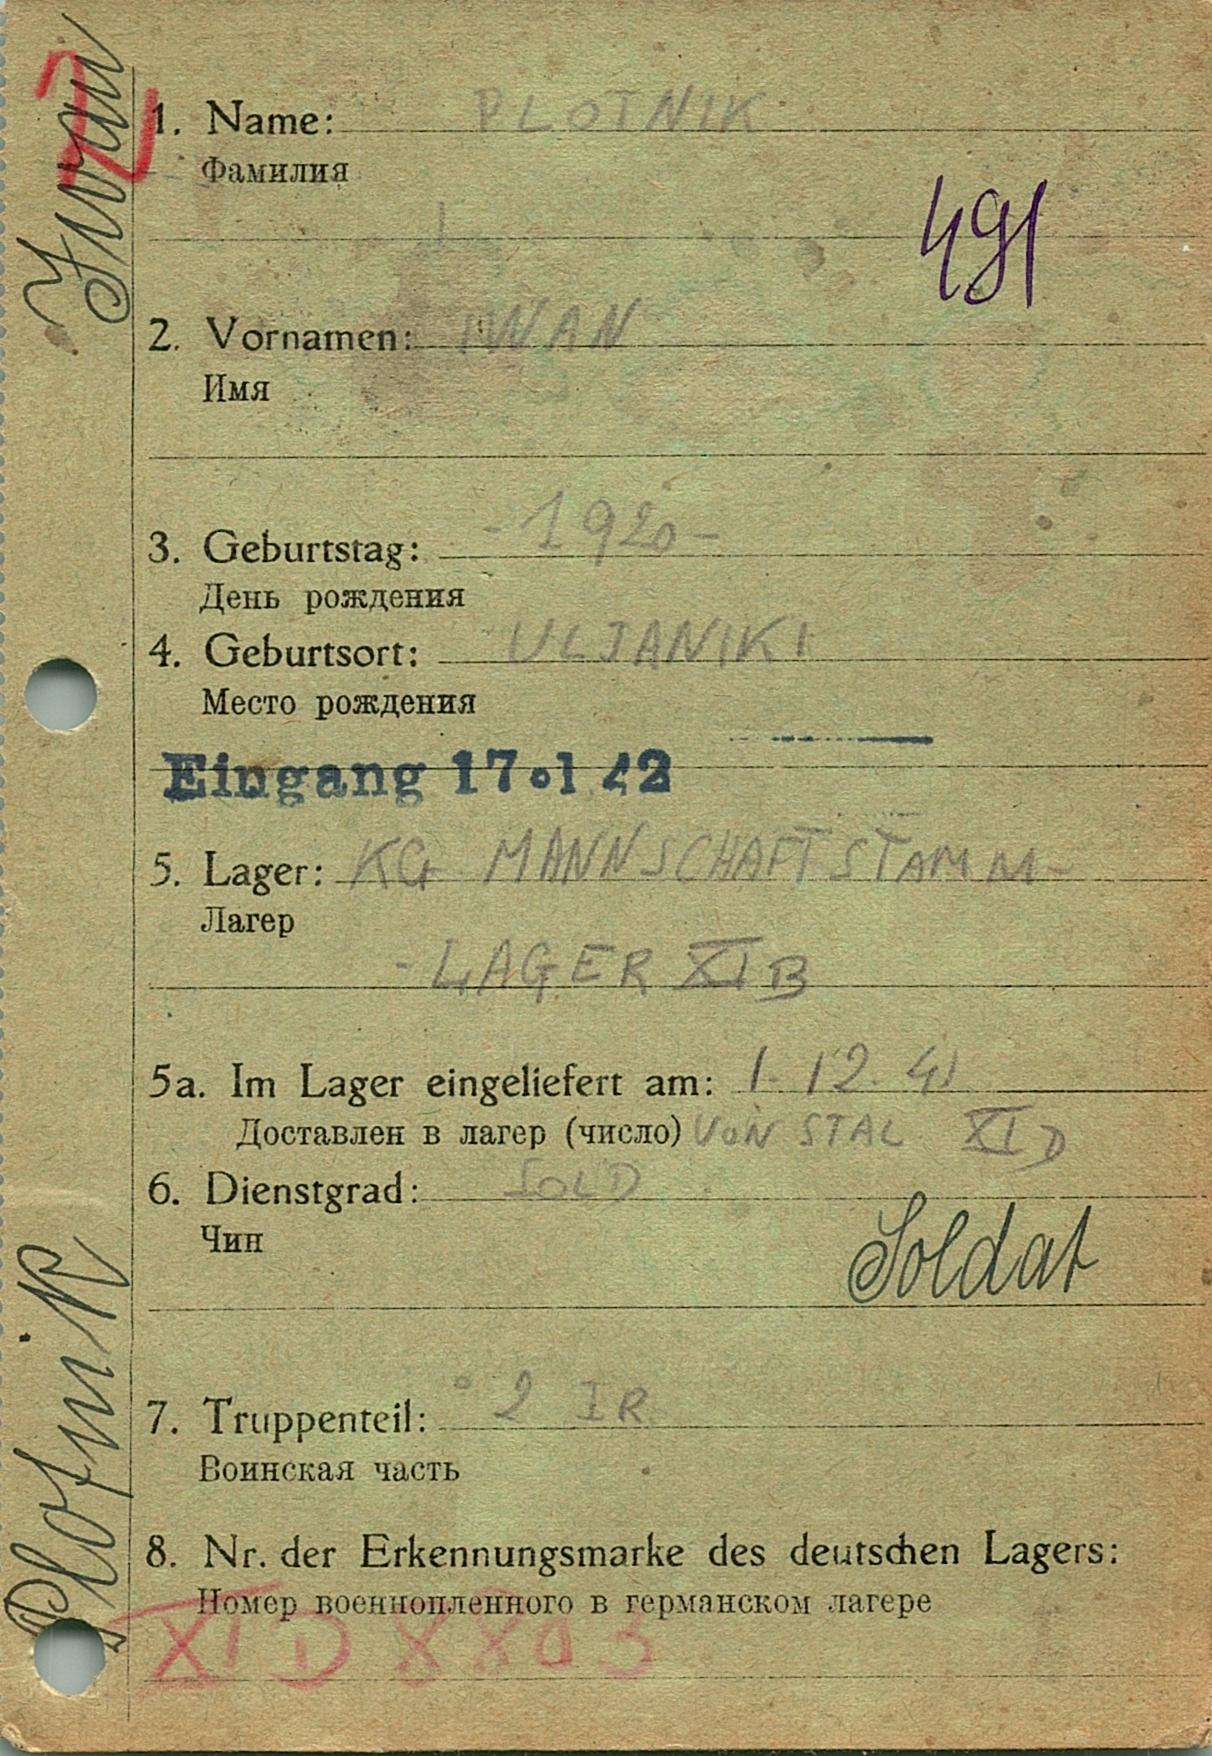 1. Name: PLOTNIK
Фамилия
491
2. Vornamen: IWAN
Имя
3. Geburtstag: -1920-
День рождения
4. Geburtsort: ULJANIKI
Место рождения
Eingang 17.1 42
5. Lager: KG MANNSCHAFTSSTAMM-
Лагер
-LAGER XI B
5a. Im Lager eingeliefert am: 1. 12. 41
Доставлен в лагер (число) VON STAL XI D
6. Dienstgrad: SOLD
Чин
Soldat
7. Truppenteil: 2 IR
Воинская часть
8. Nr. der Erkennungsmarke des deutschen Lagers:
Номер военнопленного в германском лагере
XI D 8803
Plotnik Iwan